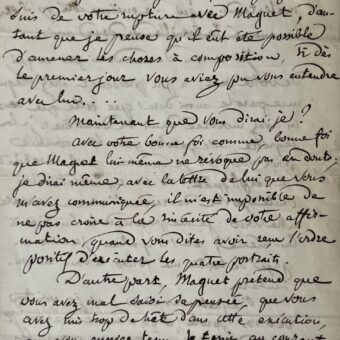 suis de votre rupture avec Maquet, d'au-
tant que je pense qu'il eût été possible
d'amener les choses à composition, si dès
le premier jour vous aviez pu vous entendre
avec lui....
Maintenant que vous dirai-je?
Avec votre bonne foi connue, bonne foi
que Maquet lui même ne revoque pas en doute,
je dirai même, avec la lettre de lui que vous
m'avez communiquée, il m'est impossible de
ne pas croire à la sincérité de votre affir-
mation, quand vous dites avoir reçu l'ordre
positif d'exécuter les quatre portraits.
D'autre part, Maquet prétend que
vous avez mal saisi sa pensée, que vous
avez mis trop de hate dans cette exécution,